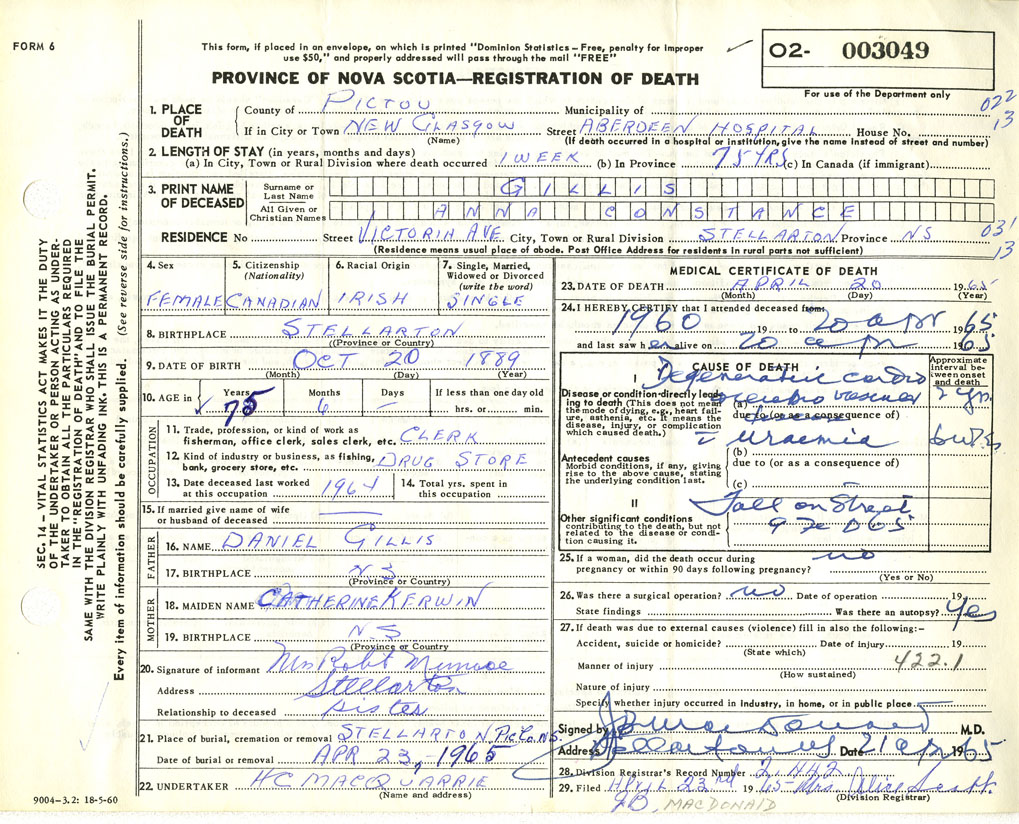 FORM 6
This form, if placed in an envelope, on which is printed "Dominion Statistics – Free, penalty for improper
use $50," and properly addressed will pass through the mail "FREE"
PROVINCE OF NOVA SCOTIA—REGISTRATION OF DEATH
O2- 003049
For use of the Department only
022
13
1. PLACE OF DEATH
County of PICTOU Municipality of
If in City or Town NEW GLASGOW Street ABERDEEN HOSPITAL House No.
(Name) (If death occurred in a hospital or institution, give the name instead of street and number)
2. LENGTH OF STAY (in years, months and days)
(a) In City, Town or Rural Division where death occurred 1 WEEK (b) In Province 75 YRS (c) In Canada (if immigrant)
3. PRINT NAME OF DECEASED
Surname or Last Name GILLIS
All Given or Christian Names ANNA CONSTANCE
RESIDENCE No Street VICTORIA AVE City, Town or Rural Division STELLARTON Province NS
031
13
(Residence means usual place of abode. Post Office Address for residents in rural parts not sufficient)
SEC. 14 – VITAL STATISTICS ACT MAKES IT THE DUTY
OF THE UNDERTAKER OR PERSON ACTING AS UNDER-
TAKER TO OBTAIN ALL THE PARTICULARS REQUIRED
IN THE "REGISTRATION OF DEATH" AND TO FILE THE
SAME WITH THE DIVISION REGISTRAR WHO SHALL ISSUE THE BURIAL PERMIT.
WRITE PLAINLY WITH UNFADING INK. THIS IS A PERMANENT RECORD.
Every item of information should be carefully supplied. (See reverse side for instructions.)
4. Sex FEMALE
5. Citizenship (Nationality) CANADIAN
6. Racial Origin IRISH
7. Single, Married, Widowed or Divorced (write the word) SINGLE
8. BIRTHPLACE STELLARTON
(Province or Country)
9. DATE OF BIRTH OCT 20 1889
(Month) (Day) (Year)
10. AGE in Years 75 Months 6 Days — If less than one day old hrs. or min.
OCCUPATION
11. Trade, profession, or kind of work as
fisherman, office clerk, sales clerk, etc. CLERK
12. Kind of industry or business, as fishing,
bank, grocery store, etc. DRUG STORE
13. Date deceased last worked
at this occupation 1964
14. Total yrs. spent in
this occupation
15. If married give name of wife
or husband of deceased
FATHER
16. NAME DANIEL GILLIS
17. BIRTHPLACE NS
(Province or Country)
MOTHER
18. MAIDEN NAME CATHERINE KERWIN
19. BIRTHPLACE N.S
(Province or Country
20. Signature of informant Mrs Robt Munroe
Address Stellarton
Relationship to deceased sister
21. Place of burial, cremation or removal STELLARTON Pic Co. NS.
Date of burial or removal APR 23, 1965
22. UNDERTAKER HC MACQUARRIE
(Name and address)
9004–3.2: 18-5-60
MEDICAL CERTIFICATE OF DEATH
23. DATE OF DEATH APRIL 20 1965
(Month) (Day) (Year)
24. I HEREBY CERTIFY that I attended deceased from
1960 19 to 20 apr 1965
and last saw her alive on 20 apr 1965
CAUSE OF DEATH
Approximate interval between onset and death
I
Disease or condition directly leading to death (This does not mean the mode of dying, e.g., heart failure, asthenia, etc. It means the disease, injury, or complication which caused death.)
Degenerative cardio
(a) vascular 2 yr.
due to (or as a consequence of)
Uraemia
Antecedent causes
Morbid conditions, if any, giving rise to the above cause, stating the underlying condition last.
(b)
due to (or as a consequence of)
(c)
II
Other significant conditions
contributing to the death, but not related to the disease or condition causing it.
Fall on Street
25. If a woman, did the death occur during
pregnancy or within 90 days following pregnancy? no
(Yes or No)
26. Was there a surgical operation? no Date of operation 19
State findings Was there an autopsy? Yes
27. If death was due to external causes (violence) fill in also the following:–
Accident, suicide or homicide? Date of injury 19
(State which)
Manner of injury 422.1
(How sustained)
Nature of injury
Specify whether injury occurred in industry, in home, or in public place
Signed by M.D.
Address Stellarton NS Date 21 apr 1965
28. Division Registrar's Record Number 2,442
29. Filed April 23rd 1965 Mrs. Alice Scott
(Division Registrar)
JB. MACDONALD